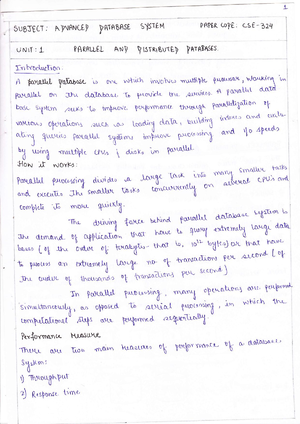 1
SUBJECT: ADVANCED DATABASE SYSTEM PAPER CODE: CSE-324
UNIT: 1 PARALLEL AND DISTRIBUTED DATABASES.
Introduction
A parallel database is one which involves multiple processors, working in
parallel on the database to provide the services. A parallel data
base system seeks to improve performance through parallelization of
various operations such as loading data, building indexes and evalu-
ating queries parallel systems improve processing and I/o speeds
by using multiple CPUs & disks in parallel.
How it works:
Parallel processing divides a large task into many smaller tasks
and executes the smaller tasks concurrently on several CPU's and
complete it more quickly.
The driving force behind parallel database system is
the demand of application that have to query extremely large data
bases (of the order of terabytes- that is, 10¹² bytes) or that have
to process an extremely large no of transactions per second (of
the order of thousands of transactions per second)
In Parallel processing, many operations are performed
simultaneously, as opposed to serial processing, in which the
computational steps are performed sequentially.
Performance Measure
There are two main measures of performance of a database
System:
1) Throughput
2) Response time